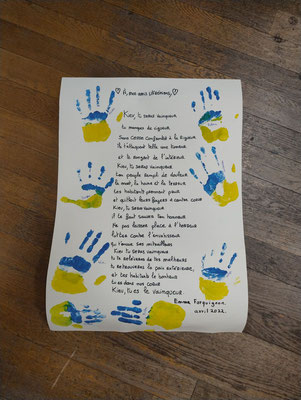 ♡ A nos amis Ukrainiens, ♡
Kiev, tu seras vainqueur
tu manques de vigueur
Sans cesse confronté à la rigueur
Ils t'attaquent telle une tumeur
et te rongent de l'intérieur
Kiev, tu seras vainqueur
Ton peuple rempli de douleur
la mort, la haine et la terreur
Les habitants prennent peur
et quittent leurs foyers à contre coeur
Kiev, tu seras vainqueur
il te faut sauver ton honneur
Ne pas laisser place à l'horreur
Luttes contre l'envahisseur
Kiev tu seras vainqueur
tu te relèveras de tes malheurs
tu retrouveras la paix extérieure,
et tes habitants le bonheur
tu es dans nos coeur
Kiev, tu es le vainqueur
Emma Forguignon.
avril 2022.